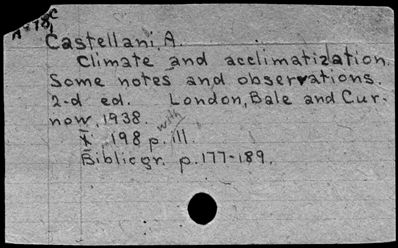 A-18c
Castellani, A.
Climate and acclimatization.
Some notes and observations.
2-d ed. London, Bale and Cur-
now, 1938.
X, 198 p. with ill.
Bibliogr. p. 177-189.